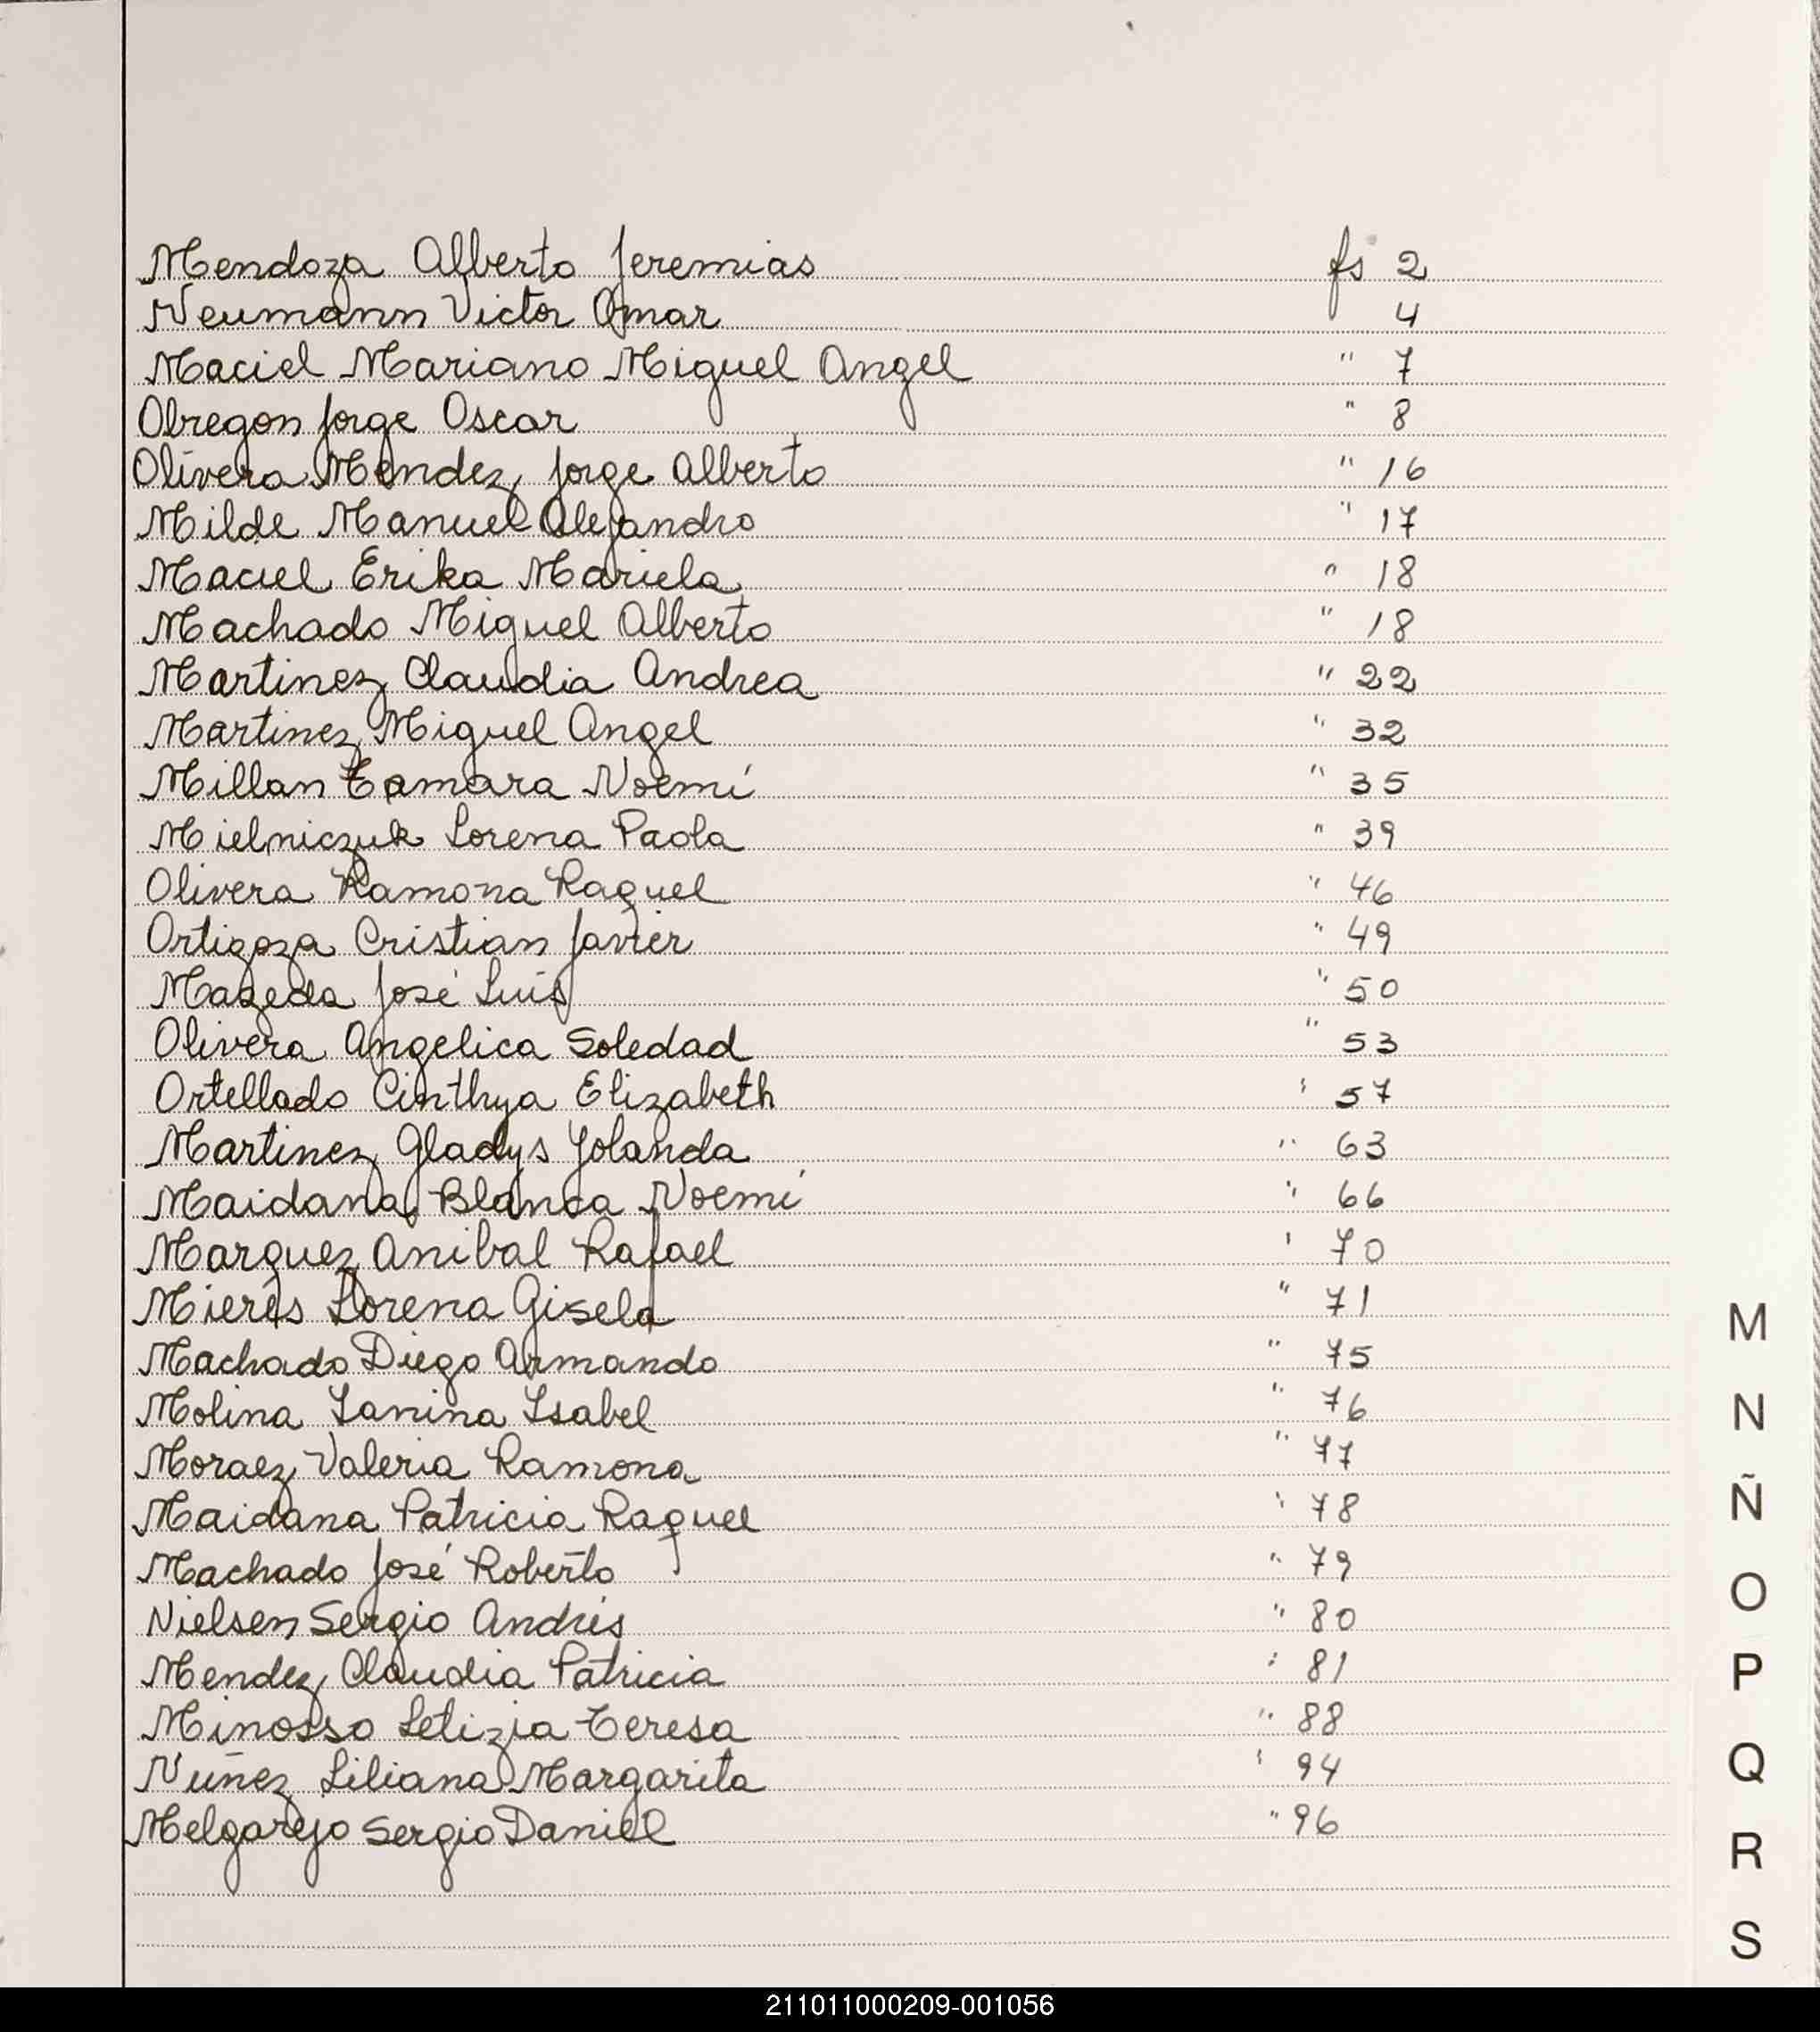 Mendoza Alberto Jeremias fs 2
Neumann Victor Omar 4
Maciel Mariano Miguel Angel " 7
Obregon Jorge Oscar " 8
Olivera Mendez Jorge Alberto " 16
Milde Manuel Alejandro " 17
Maciel Erika Mariela " 18
Machado Miguel Alberto " 18
Martinez Claudia Andrea " 22
Martinez Miguel Angel " 32
Millan Tamara Noemí " 35
Mielniczuk Lorena Paola " 39
Olivera Ramona Raquel " 46
Ortigoza Cristian Javier " 49
Mazeda José Luis " 50
Olivera Angelica Soledad " 53
Ortellado Cinthya Elizabeth " 57
Martinez Gladys Yolanda " 63
Maidana Blanca Noemí " 66
Marquez Anibal Rafael " 70
Mieres Lorena Gisela " 71
Machado Diego Armando " 75
Molina Yanina Isabel " 76
Moraez Valeria Ramona " 77
Maidana Patricia Raquel " 78
Machado José Roberto " 79
Nielsen Sergio Andrés " 80
Mendez Claudia Patricia " 81
Minosso Letizia Teresa " 88
Nuñez Liliana Margarita " 94
Melgarejo Sergio Daniel " 96
M
N
Ñ
O
P
Q
R
S
211011000209-001056